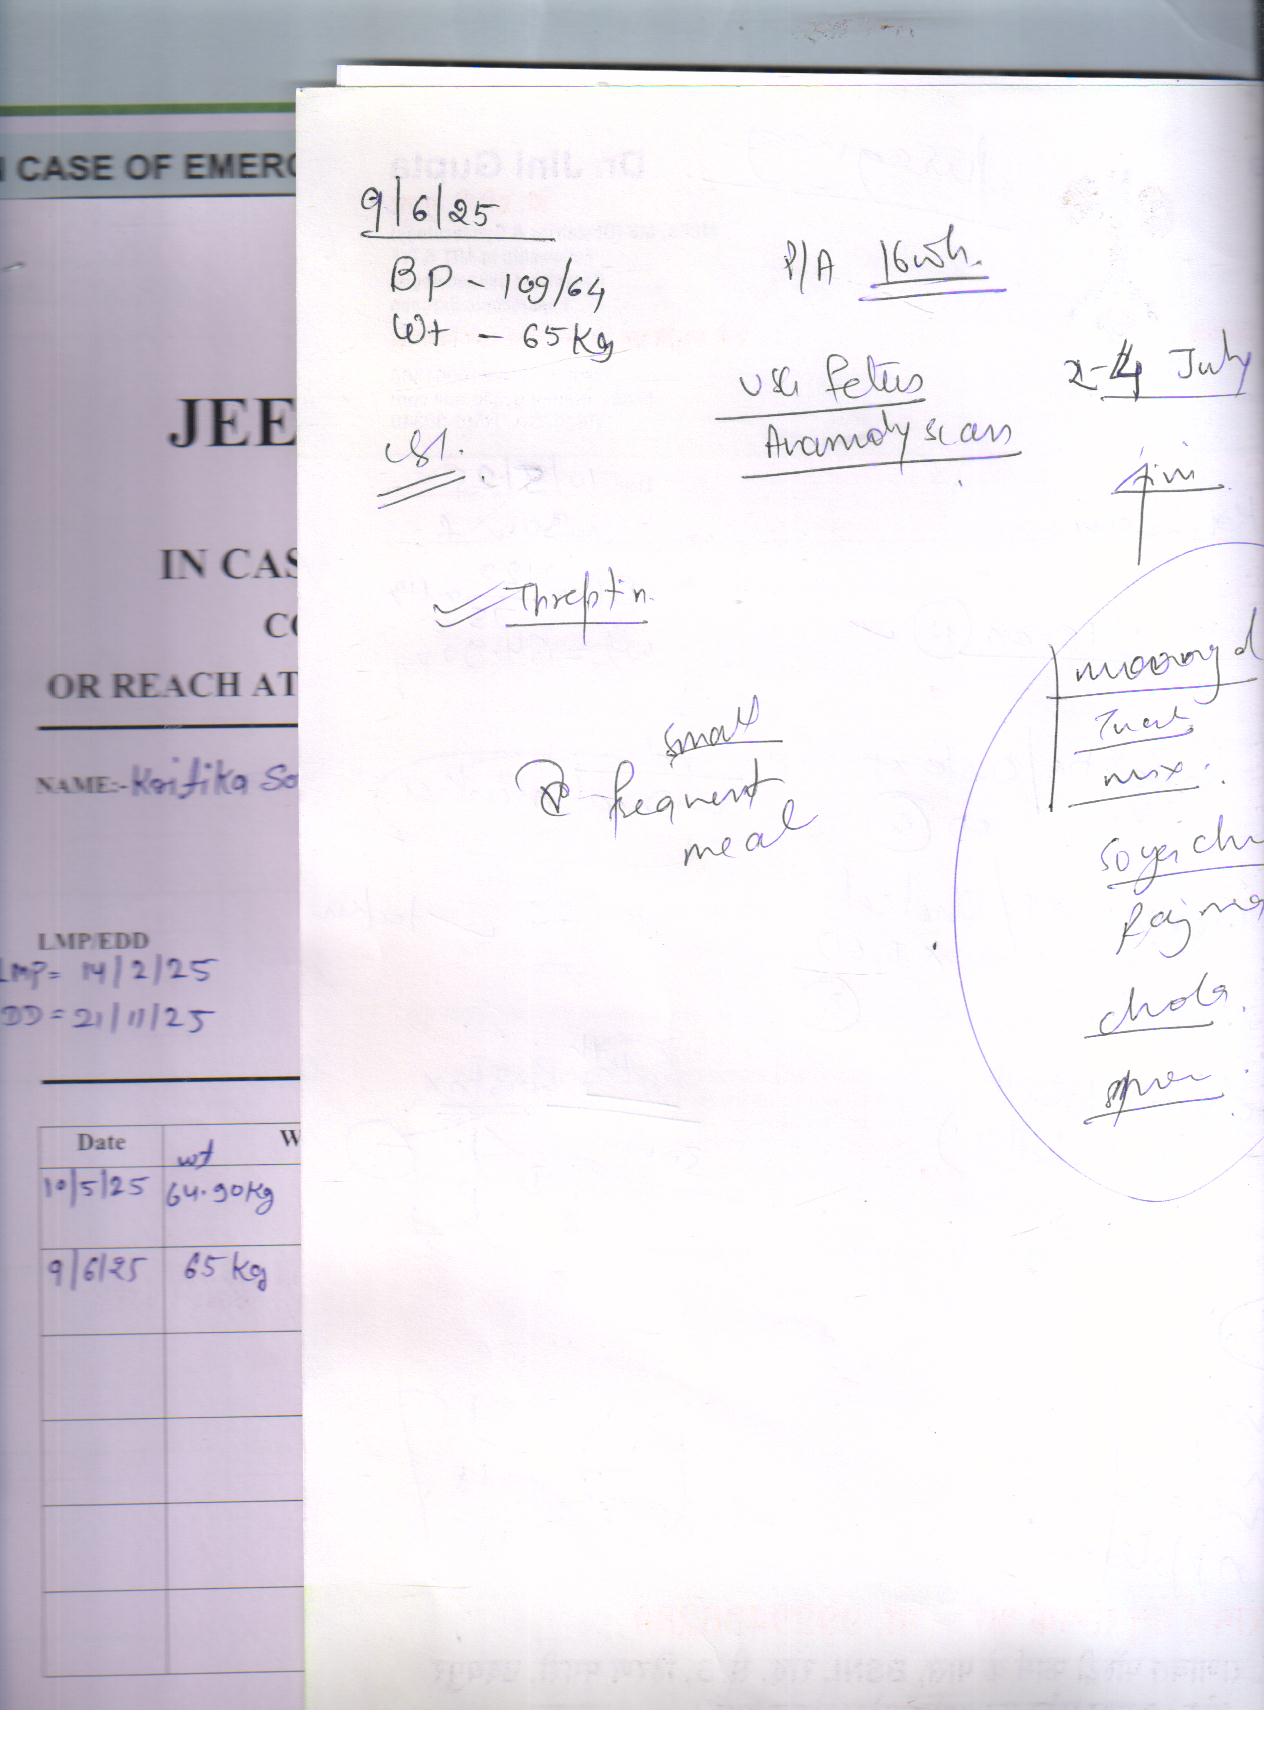 N CASE OF EMERG
JEE
IN CAS
CO
OR REACH AT
NAME:- Kritika So
LMP/EDD
LMP= 14/2/25
DD = 21/11/25
Date W
wt
10/5/25 64.90Kg
9/6/25 65 Kg
9/6/25
BP - 109/64
Wt - 65Kg
P/A 16wk.
USG fetus
Anamoly scan
2-4 July
CST.
Threptin.
small
frequent
meal
moong d
mix.
soya chu
Rajma
chole.
Dr. Jini Gupta